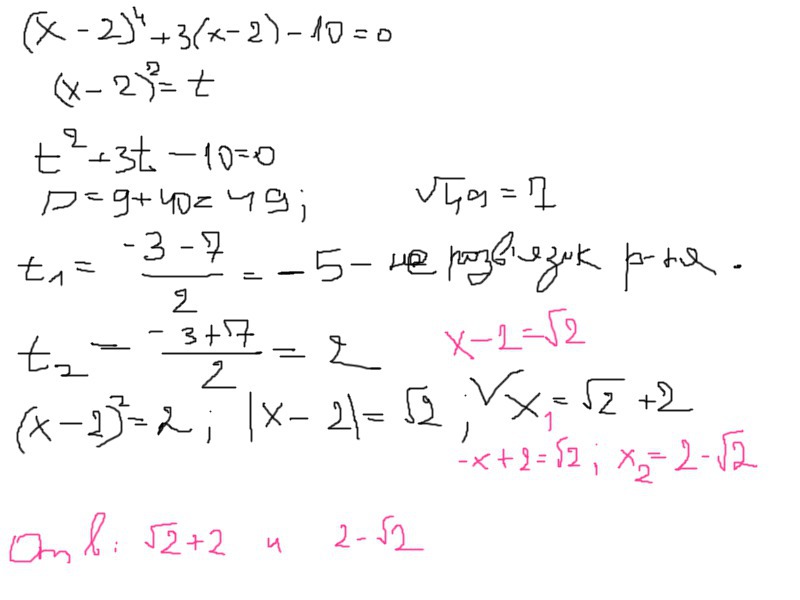 (x - 2)⁴ + 3(x - 2) - 10 = 0
(x - 2)² = t
t² + 3t - 10 = 0
D = 9 + 40 = 49; √49 = 7
t₁ = (-3 - 7)/2 = -5 - не розв'язик р-ня.
t₂ = (-3 + 7)/2 = 2
x - 2 = √2
(x - 2)² = 2; |x - 2| = √2; √ x₁ = √2 + 2
-x + 2 = √2; x₂ = 2 - √2
Отв: √2 + 2 и 2 - √2